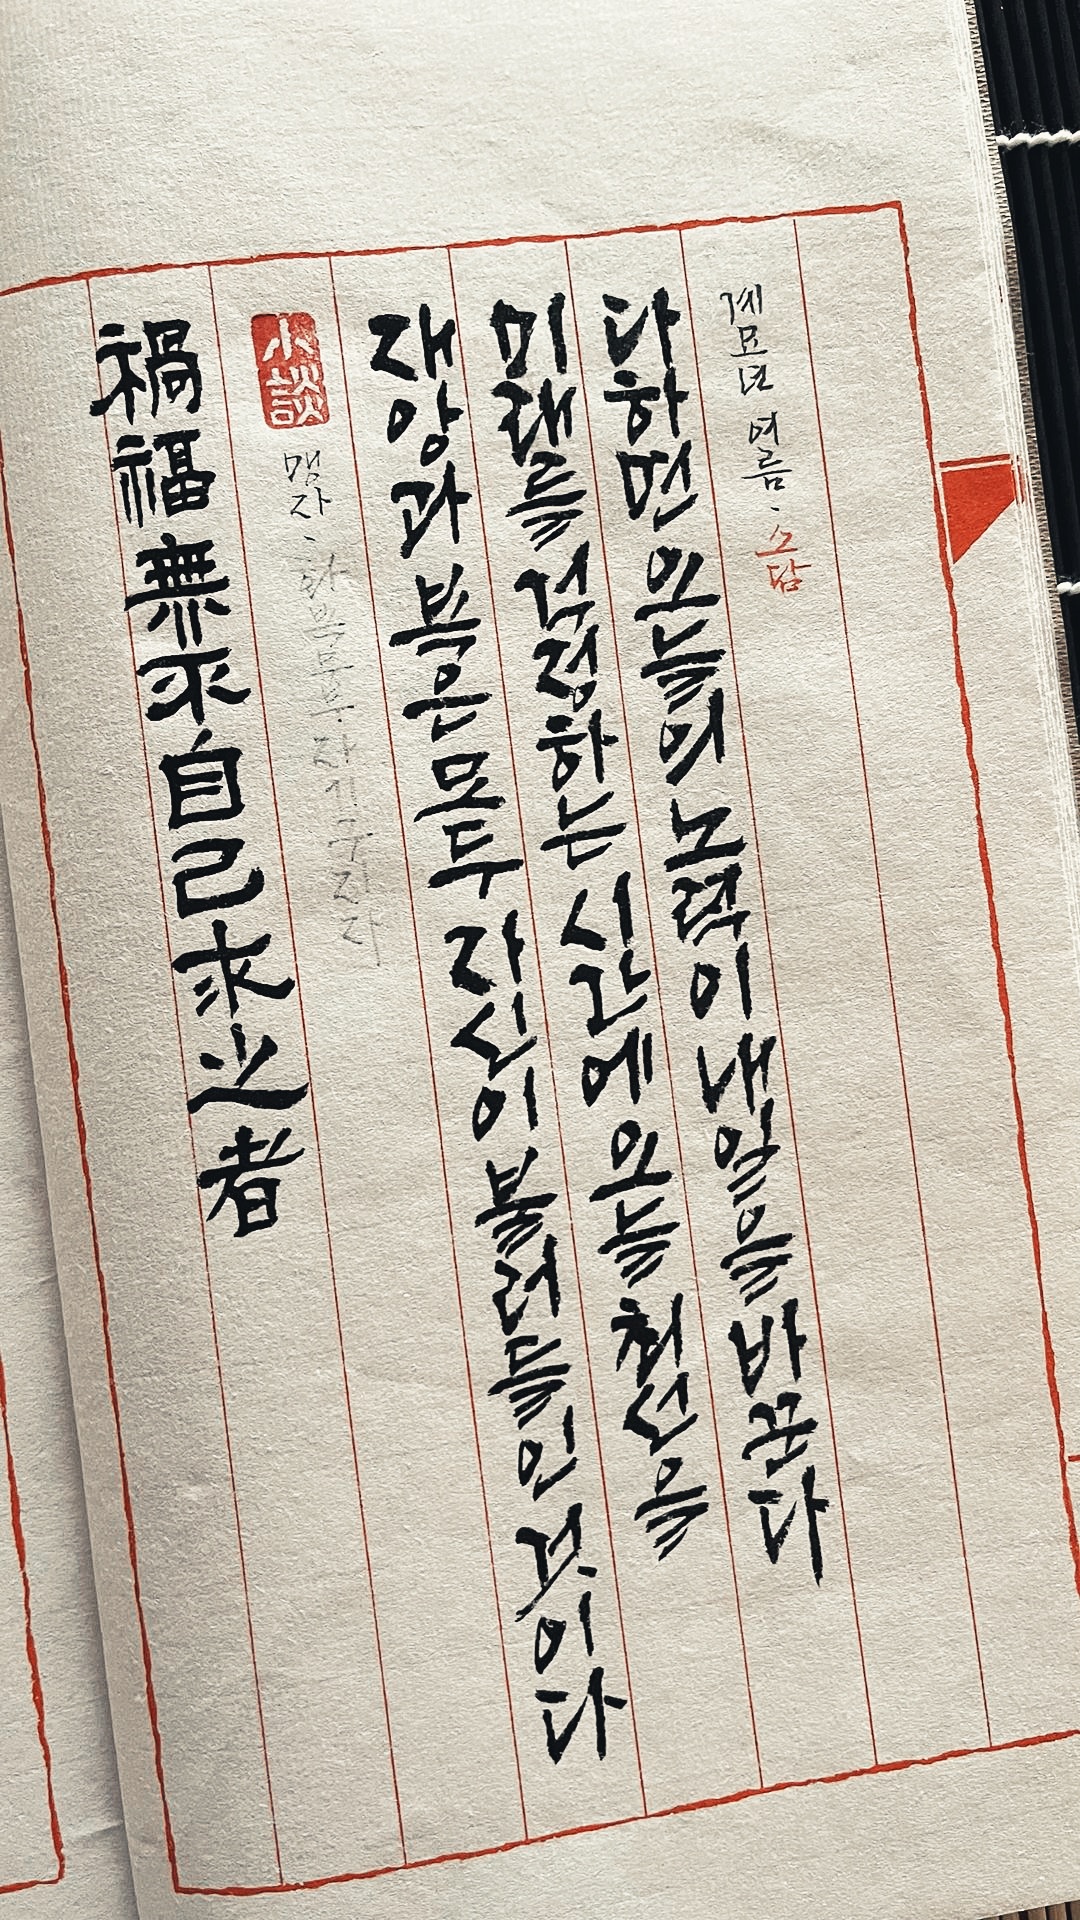 禍福無不自己求之者
小談
맹자、화복무부 자기구지자
재앙과 복은 모두 자신이 불러들인 것이다
미래를 걱정하는 시간에 오늘 최선을
다하면 오늘의 노력이 내일을 바꾼다
계묘년 여름、소담